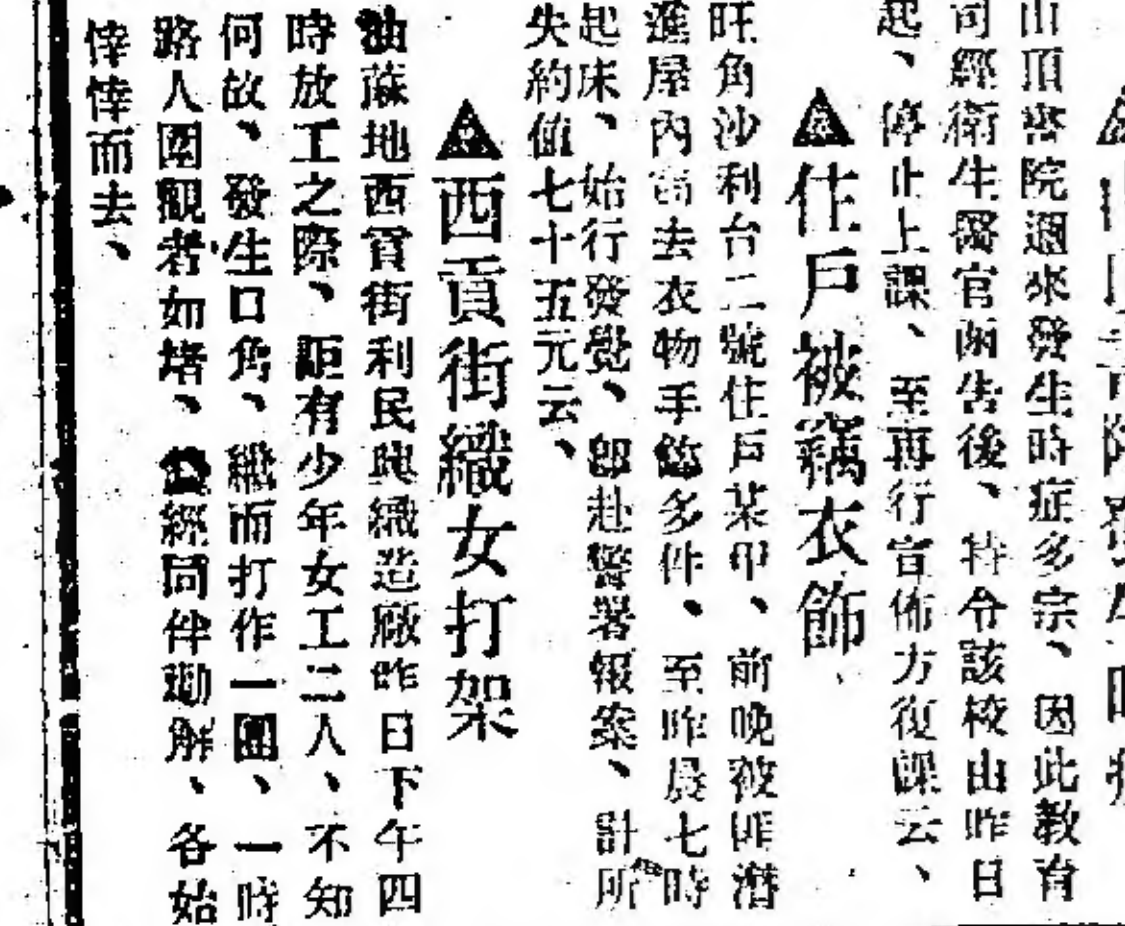 山頂書院週來發生時症多宗、因此教育
司經衛生醫官函告後、特令該校由昨日
起、停止上課、至再行宣佈方復課云、
住戶被竊衣飾
旺角沙利台二號住戶某甲、前晚被匪潛
進屋內竊去衣物手飾多件、至昨晨七時
起床、始行發覺、即赴警署報案、計所
失約値七十五元云、
西貢街織女打架
油蔴地西貢街利民興織造廠昨日下午四
時放工之際、詎有少年女工二人、不知
何故、發生口角、繼而打作一團、一時
路人圍觀者如堵、經同伴勸解、各始
悻悻而去、